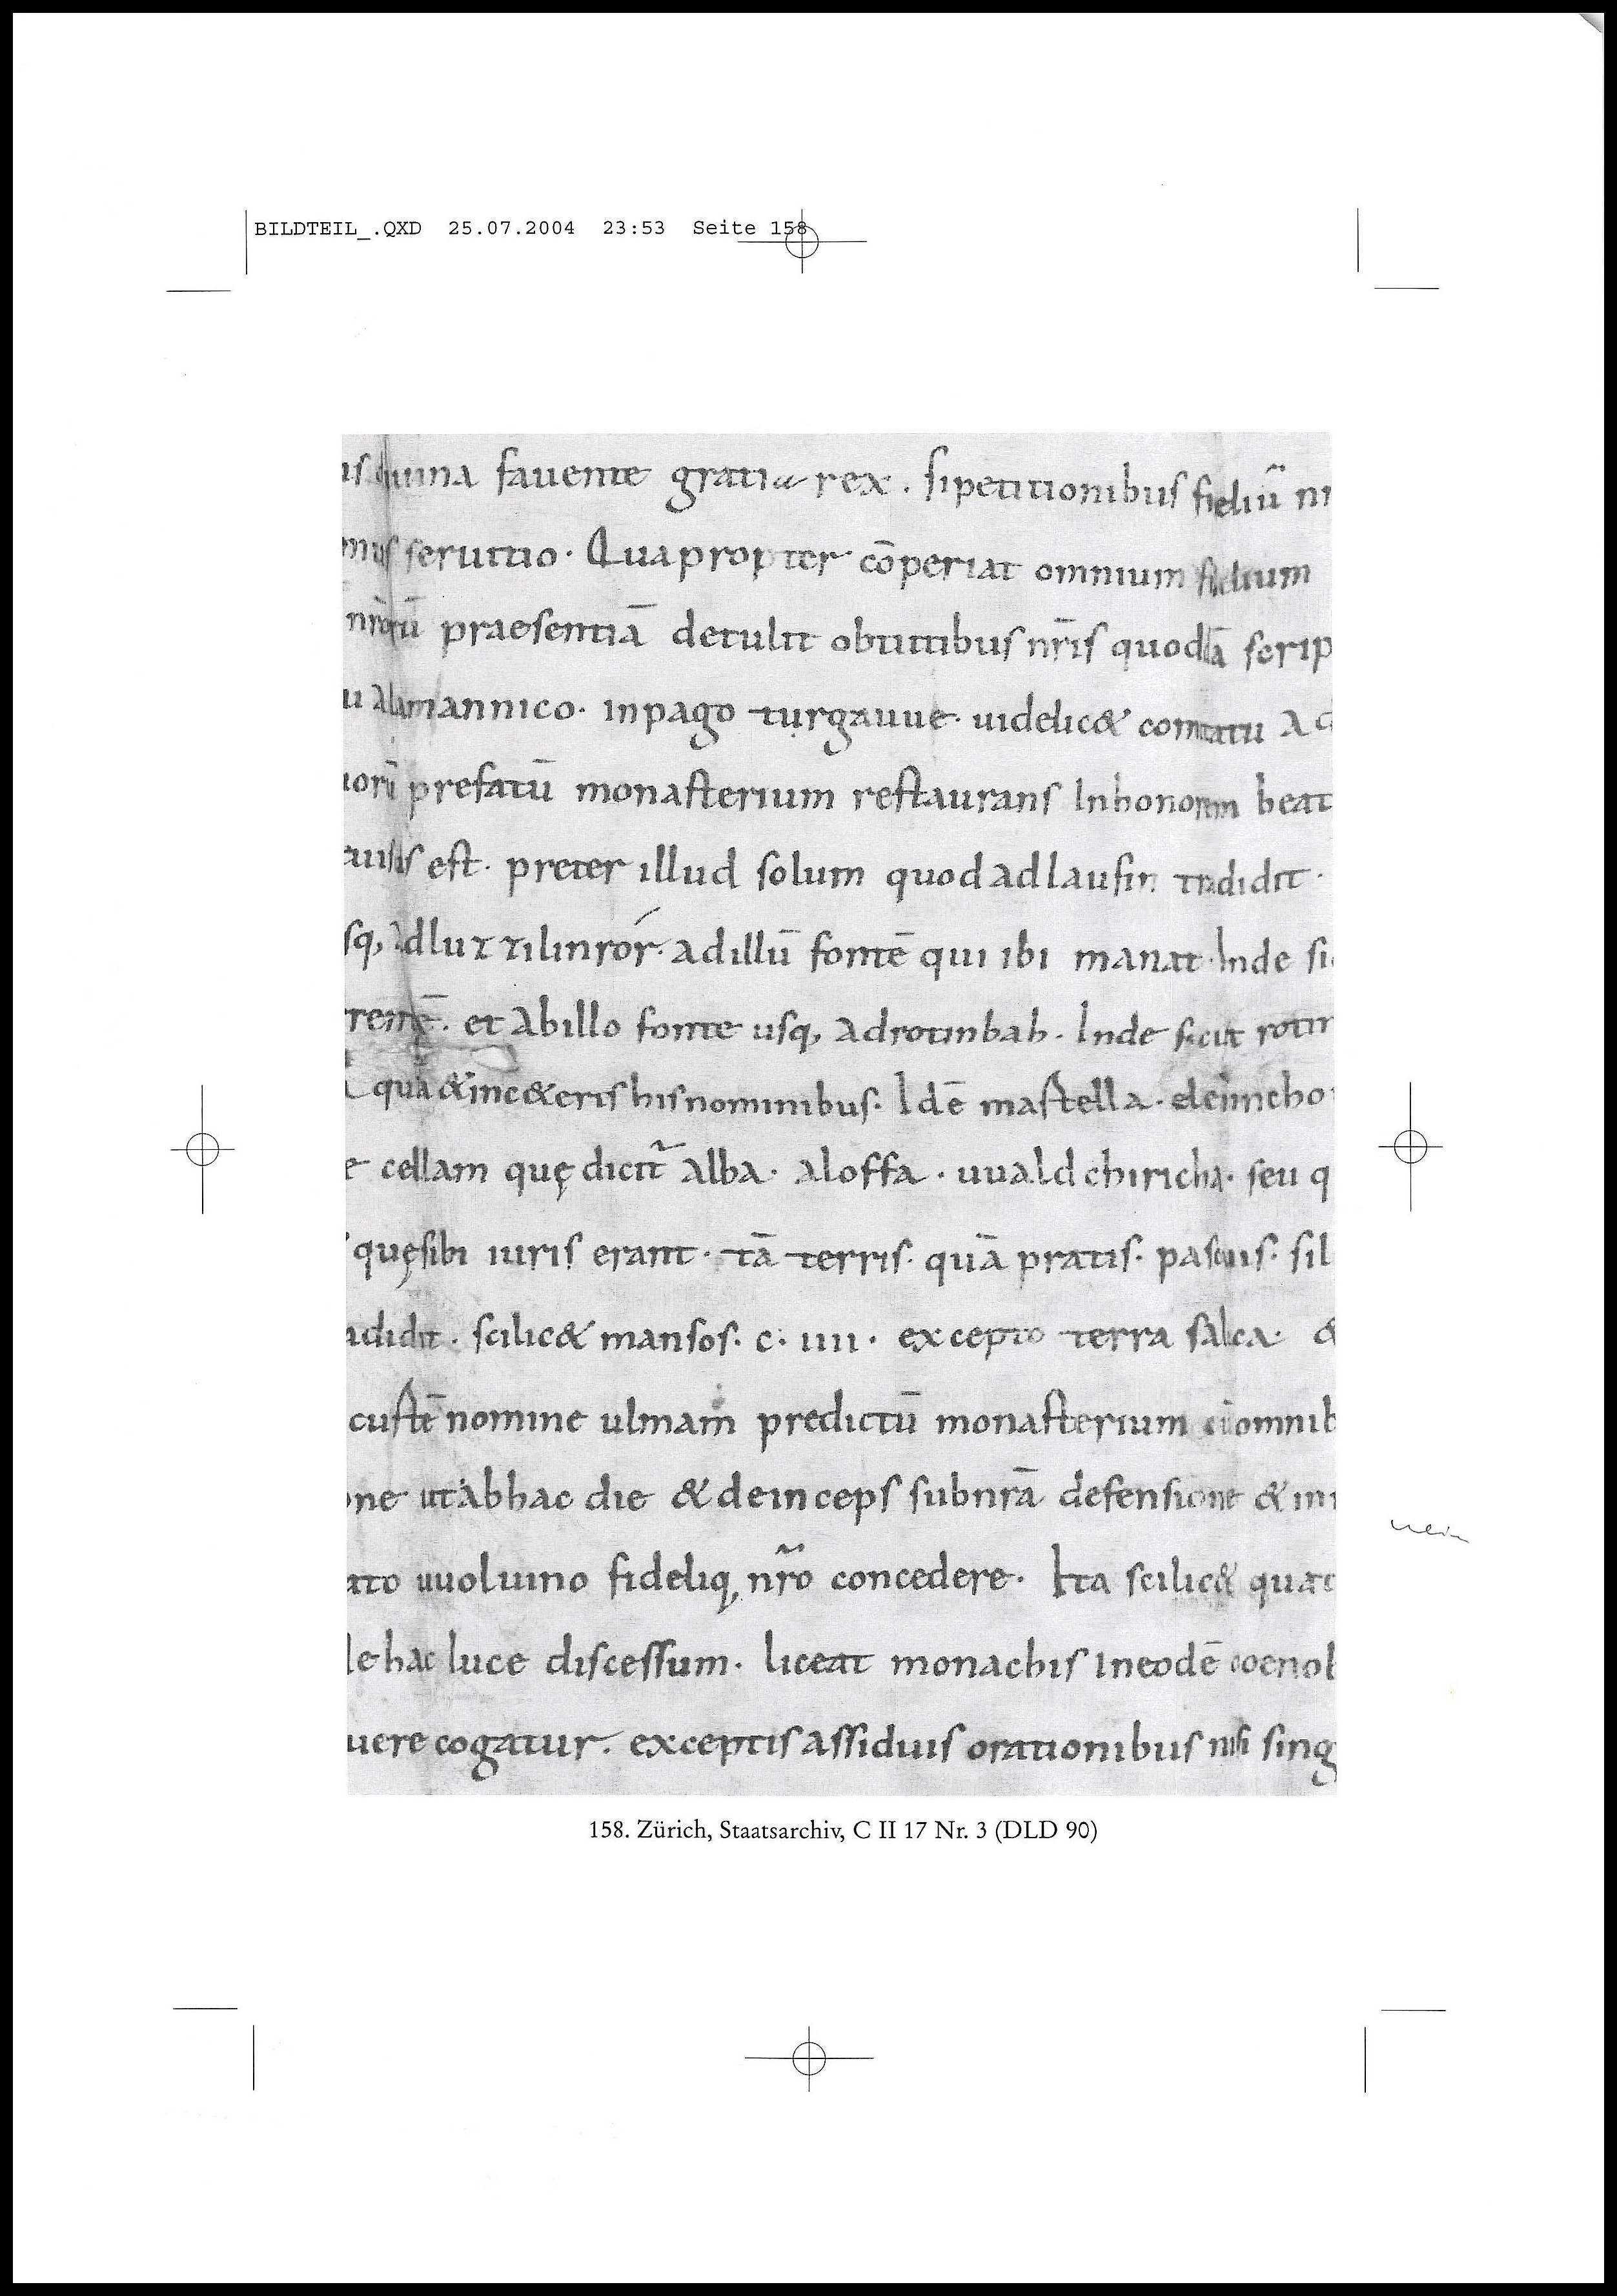 BILDTEIL_.QXD 25.07.2004 23:53 Seite 158
fauente gratia rex. si petitionibus fideliū
seruitio. Quapropter cōperiat omnium fidelium
nr̄orū praesentiā detulit obtutibus nr̄is quoddā scrip
u alamannico. in pago turgauue. uidelic& comitatu
prefatū monasterium restaurans In honorem beat
uisus est. preter illud solum quod ad lausin tradidit.
sq, ad luttilinrór. ad illū fontē qui ibi manat. Inde si
et ab illo fonte usq, ad rotinbah. Inde sicut rotin
quā & in c&eris his nominibus. Idē mastella. deinneho
e cellam quę dicit̃ alba. aloffa. uualdchiricha. seu q
quę sibi iuris erant. tā terris. quā pratis. pascuis. sil
adidit. scilic& mansos. c. iiii. excepto terra salica. &
custē nomine ulmam predictū monasterium cū omnib
one ut ab hac die & deinceps sub nr̄ā defensione & in
ato uuoluino fideliq, nr̃o concedere. Ita scilic& quat
de hac luce discessum. liceat monachis In eodē coenob
uere cogatur. exceptis assiduis orationibus nisi sing
nein
158. Zürich, Staatsarchiv, C II 17 Nr. 3 (DLD 90)